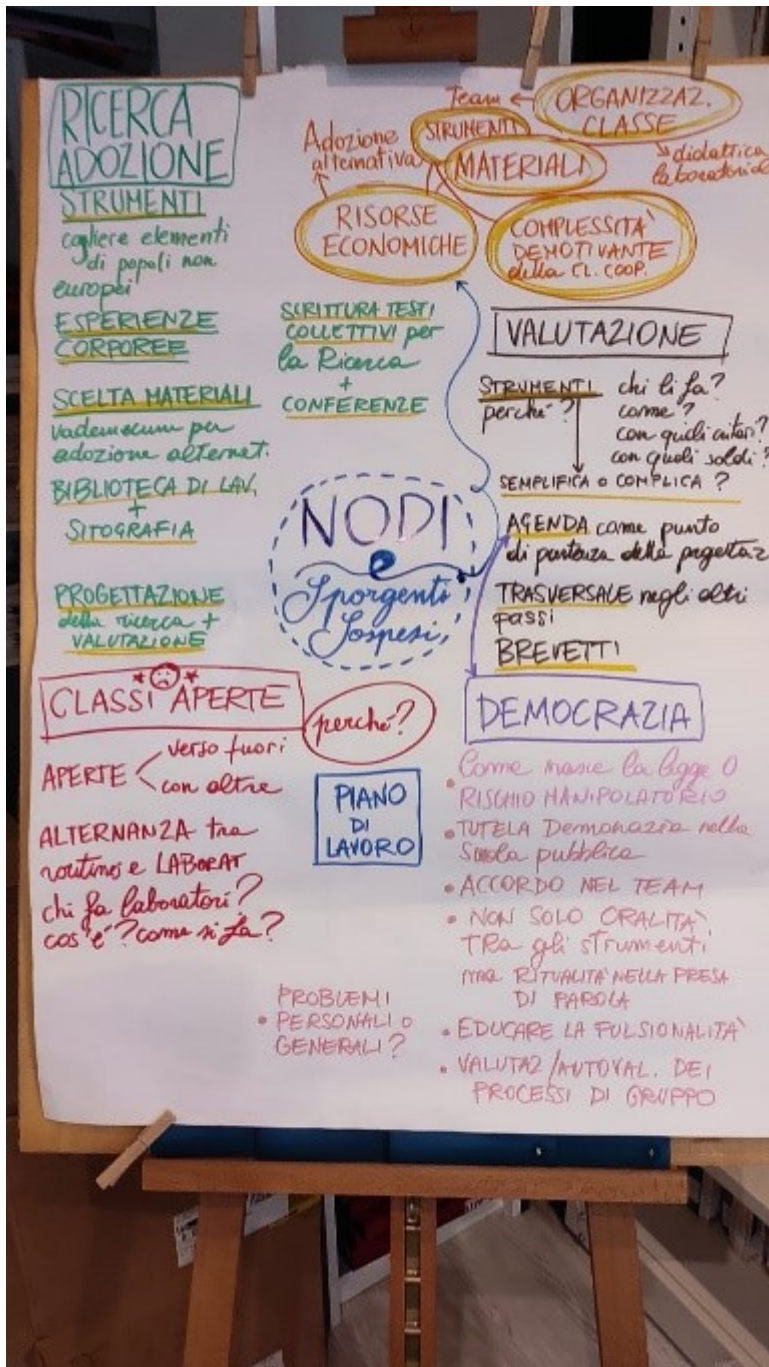 RICERCA
ADOZIONE
STRUMENTI
cogliere elementi
di popoli non
europei
ESPERIENZE
CORPOREE
SCELTA MATERIALI
vademecum per
adozione alternat.
BIBLIOTECA DI LAV.
+
SITOGRAFIA
PROGETTAZIONE
della ricerca +
VALUTAZIONE
SCRITTURA TESTI
COLLETTIVI per
la Ricerca
+
CONFERENZE
Team ← ORGANIZZAZ.
CLASSE
didattica
laboratoriale
STRUMENTI
MATERIALI
Adozione
alternativa
RISORSE
ECONOMICHE
COMPLESSITÀ
DEMOTIVANTE
della CL. COOP.
VALUTAZIONE
STRUMENTI chi li fa?
perché? come?
con quali criteri?
con quali soldi?
SEMPLIFICA O COMPLICA?
AGENDA come punto
di partenza della progettaz
TRASVERSALE negli altri
passi
BREVETTI
NODI
Sporgenti
Sospesi
CLASSI APERTE
perché?
APERTE < verso fuori
con altre
ALTERNANZA tra
routines e LABORAT
chi fa laboratori?
cos'è? come si fa?
PIANO
DI
LAVORO
DEMOCRAZIA
Come nasce la legge O
• RISCHIO MANIPOLATORIO
• TUTELA Democrazia nella
Scuola pubblica
• ACCORDO NEL TEAM
• NON SOLO ORALITÀ
TRA gli strumenti
ma RITUALITÀ NELLA PRESA
DI PAROLA
• EDUCARE LA PULSIONALITÀ
• VALUTAZ/AUTOVAL. DEI
PROCESSI DI GRUPPO
PROBLEMI
• PERSONALI O
GENERALI?